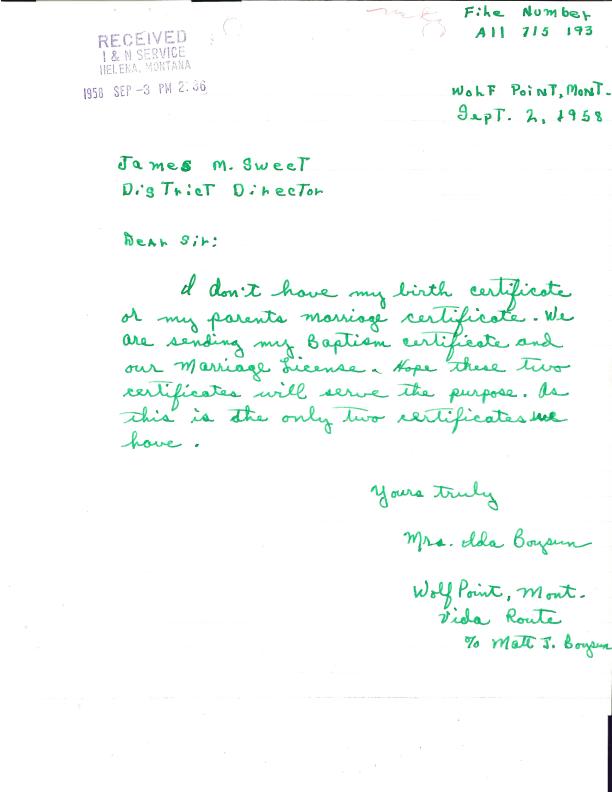 File Number
A11 715 193
RECEIVED
I & N SERVICE
HELENA, MONTANA
1958 SEP -3 PM 2:36
Wolf Point, Mont.
Sept. 2, 1958
James M. Sweet
District Director
Dear Sir:
I don't have my birth certificate
or my parents marriage certificate. We
are sending my Baptism certificate and
our Marriage License. Hope these two
certificates will serve the purpose. As
this is the only two certificates we
have.
Yours truly
Mrs. Ida Boysun
Wolf Point, Mont.
Vida Route
% Matt J. Boysun